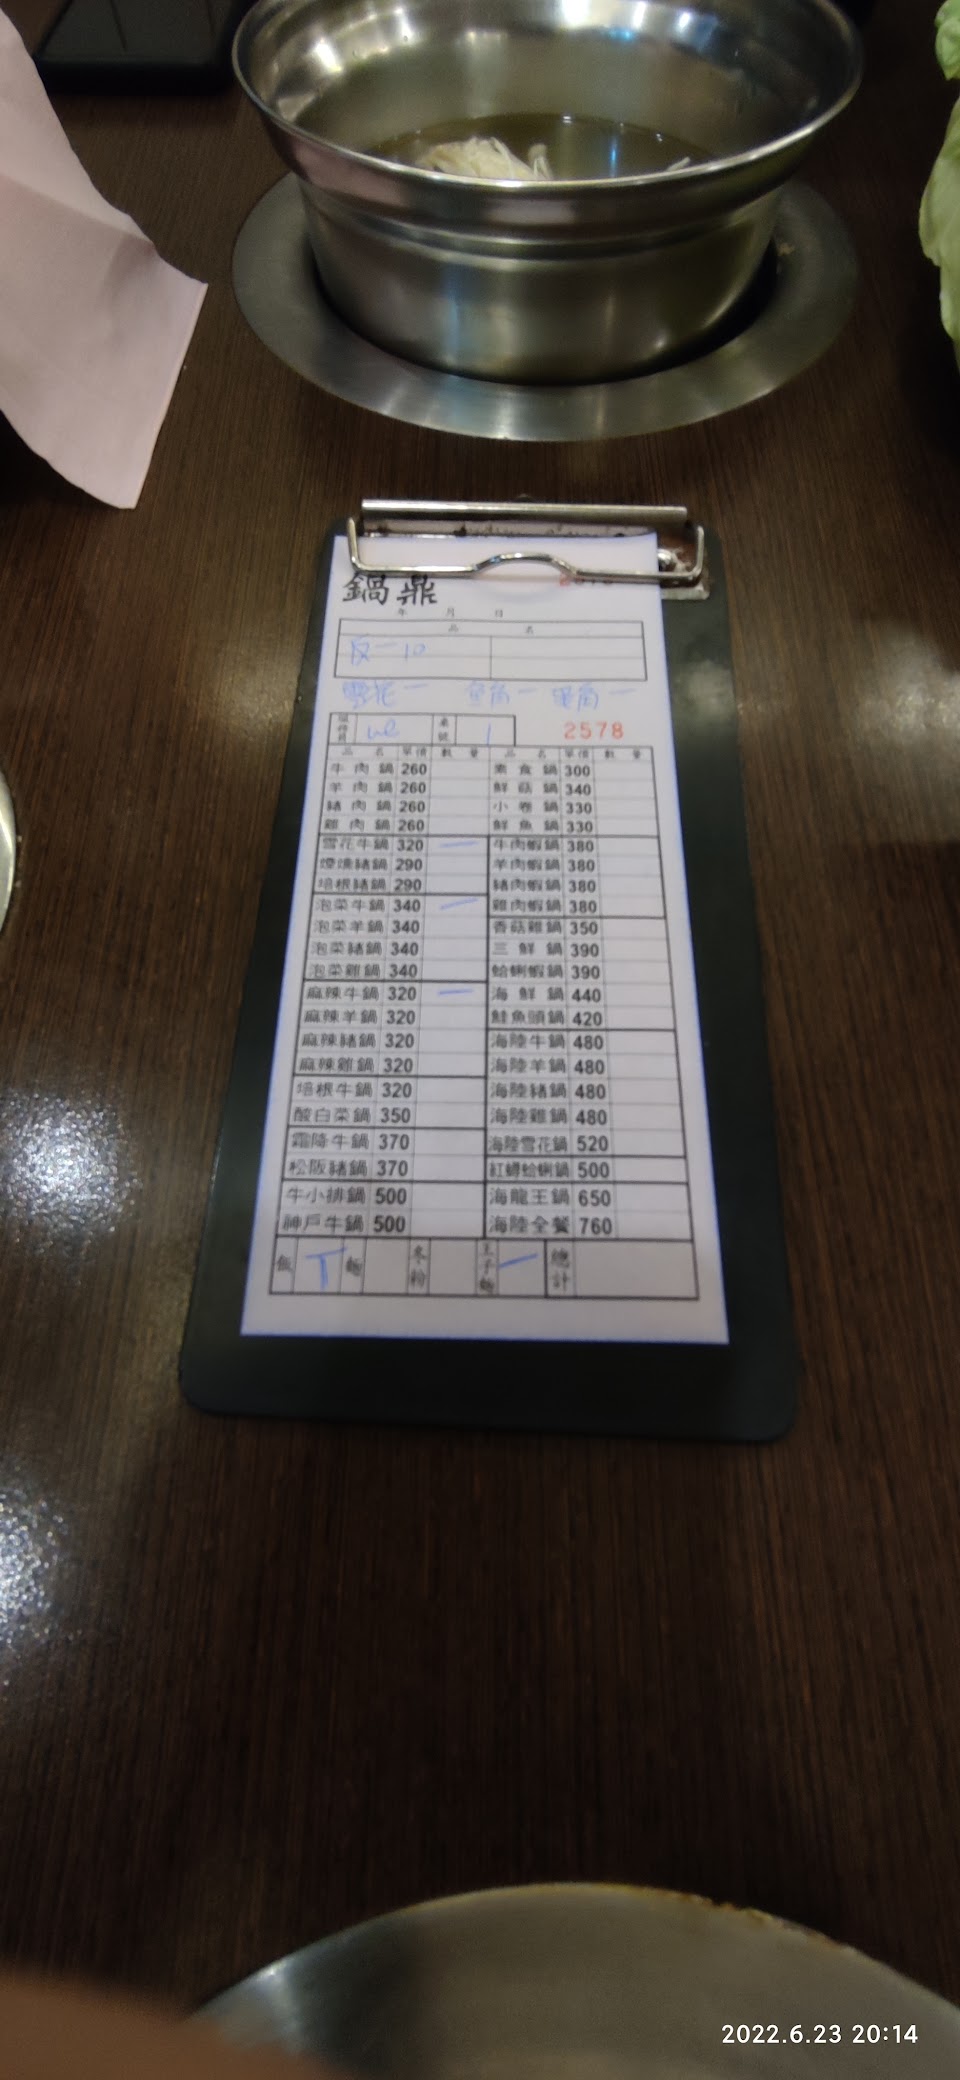 鍋鼎
年 月 日
品 名
反一 10
雪花一
服務員 桌號 1 2578
品 名 單價 數 量 品 名 單價 數 量
牛肉鍋 260 素食鍋 300
羊肉鍋 260 鮮菇鍋 340
豬肉鍋 260 小卷鍋 330
雞肉鍋 260 鮮魚鍋 330
雪花牛鍋 320 一 牛肉蝦鍋 380
煙燻豬鍋 290 羊肉蝦鍋 380
培根豬鍋 290 豬肉蝦鍋 380
泡菜牛鍋 340 一 雞肉蝦鍋 380
泡菜羊鍋 340 香菇雞鍋 350
泡菜豬鍋 340 三鮮鍋 390
泡菜雞鍋 340 蛤蜊蝦鍋 390
麻辣牛鍋 320 一 海鮮鍋 440
麻辣羊鍋 320 鮭魚頭鍋 420
麻辣豬鍋 320 海陸牛鍋 480
麻辣雞鍋 320 海陸羊鍋 480
培根牛鍋 320 海陸豬鍋 480
酸白菜鍋 350 海陸雞鍋 480
霜降牛鍋 370 海陸雪花鍋 520
松阪豬鍋 370 紅蟳蛤蜊鍋 500
牛小排鍋 500 海龍王鍋 650
神戶牛鍋 500 海陸全餐 760
飯 丅 麵 冬粉 王子麵 一 總計
2022.6.23 20:14